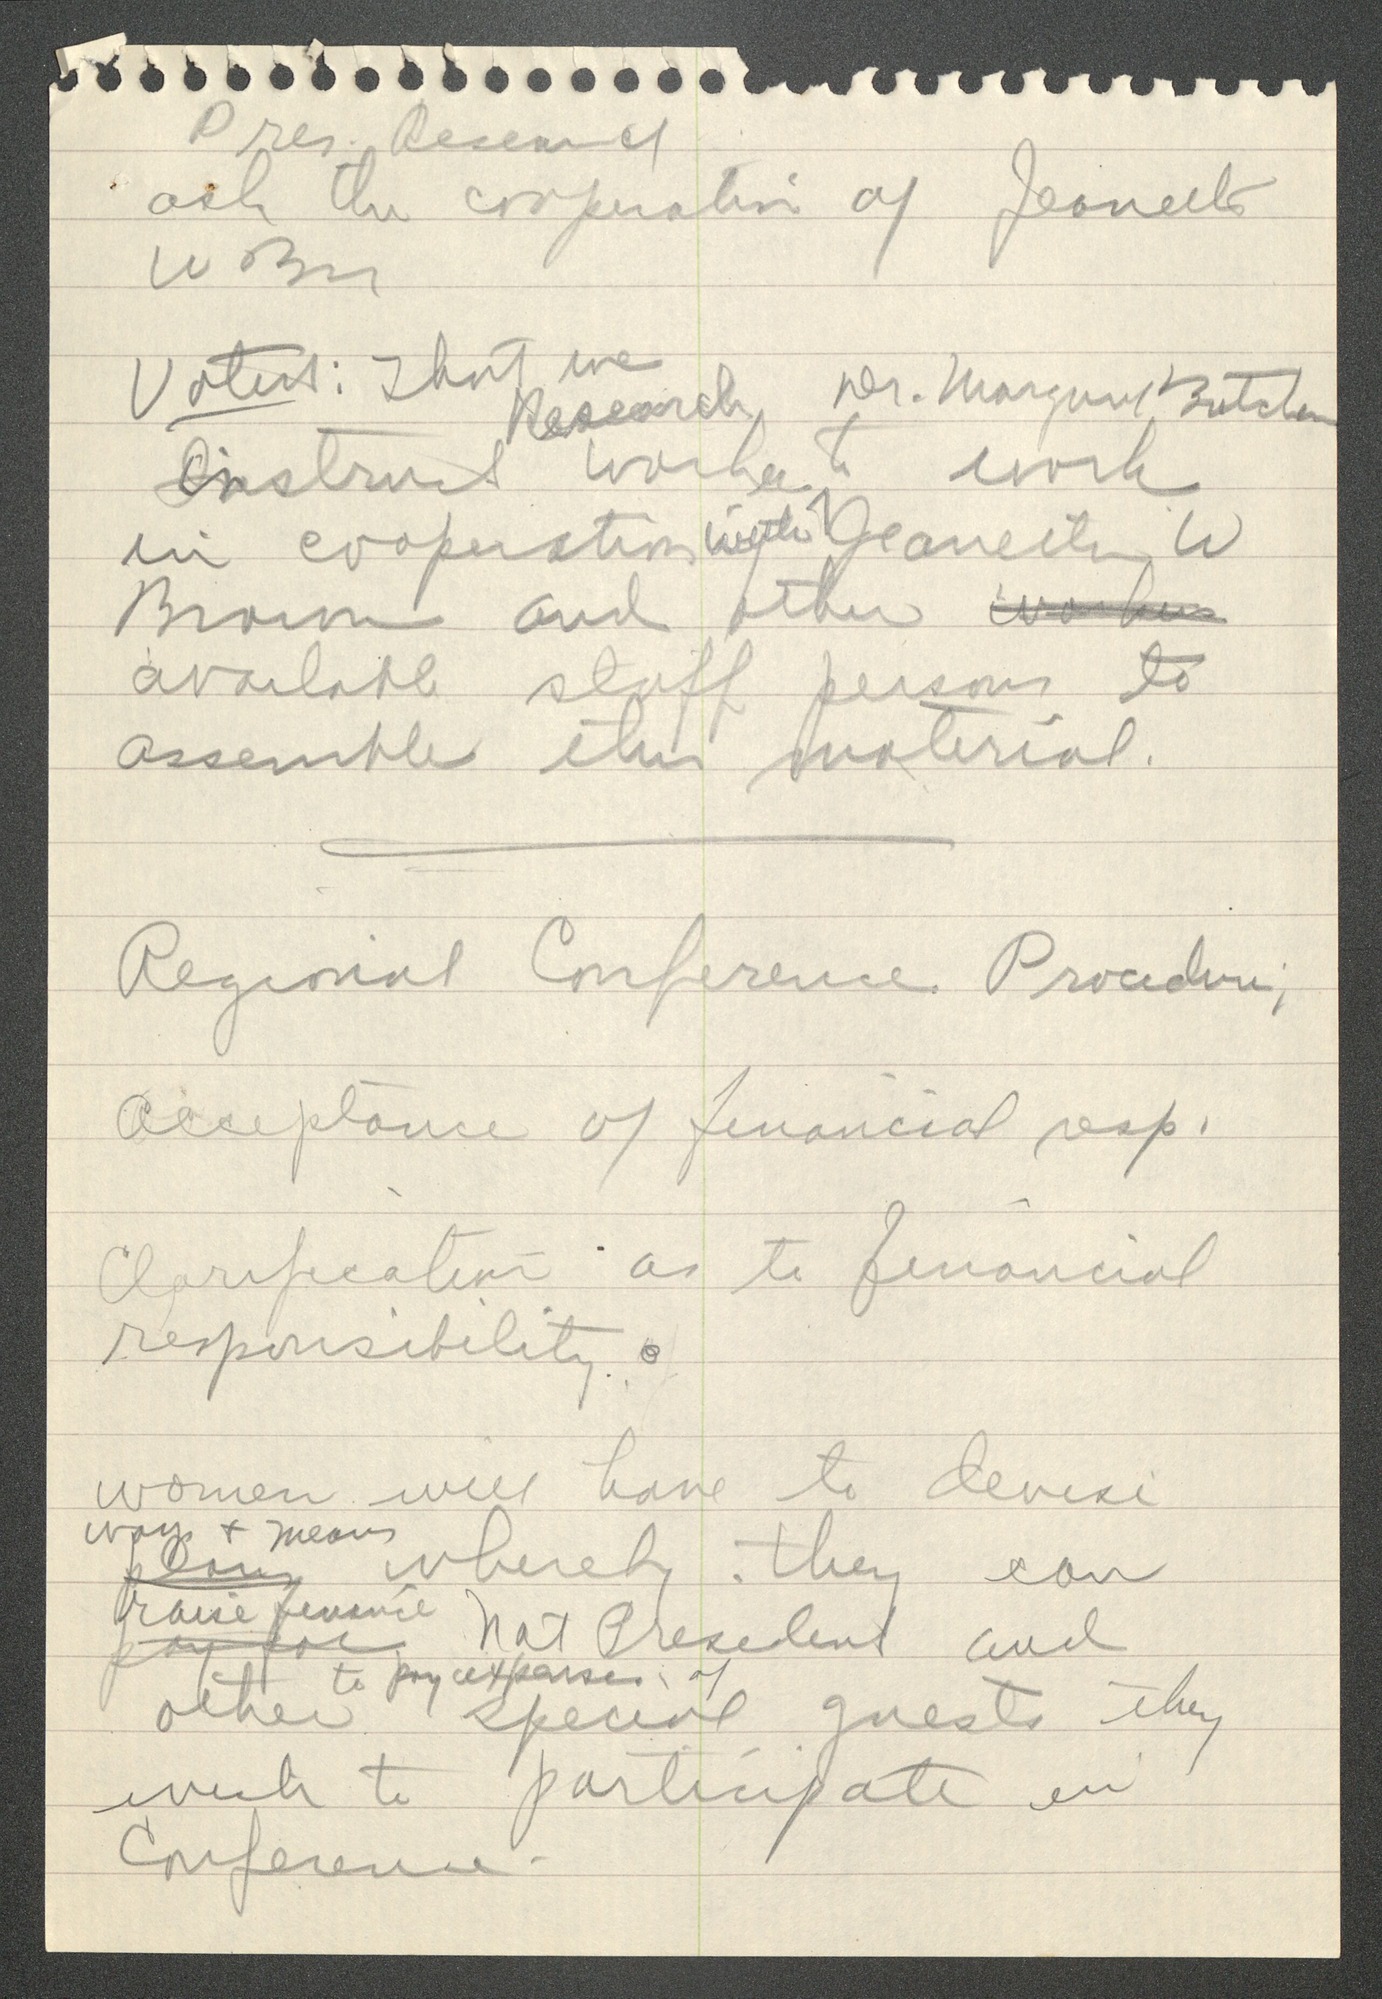 Pres. Research
ask the cooperation of Jeanette
W Br
Voted: That we
Research Dr. Margaret Butcher
instruct worker to work
in cooperation with Jeanette W
Brown and other workers
available staff persons to
assemble this material.
Regional Conference Procedure;
Acceptance of financial resp.
Clarification as to financial
responsibility.
women will have to devise
ways + means
plans whereby they can
raise finance
pay for Nat President and
to pay expenses of
other special guests they
wish to participate in
Conference.